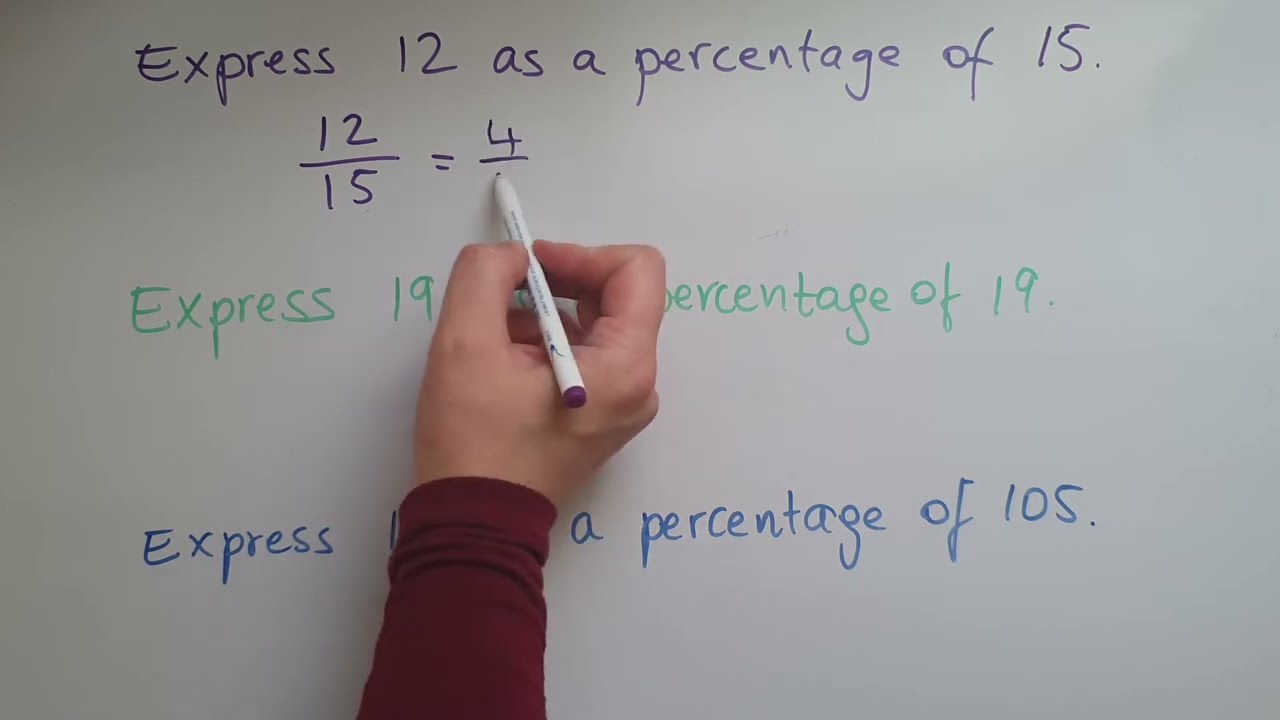 Express 12 as a percentage of 15.
12/15 = 4/
Express 19 percentage of 19.
Express a percentage of 105.